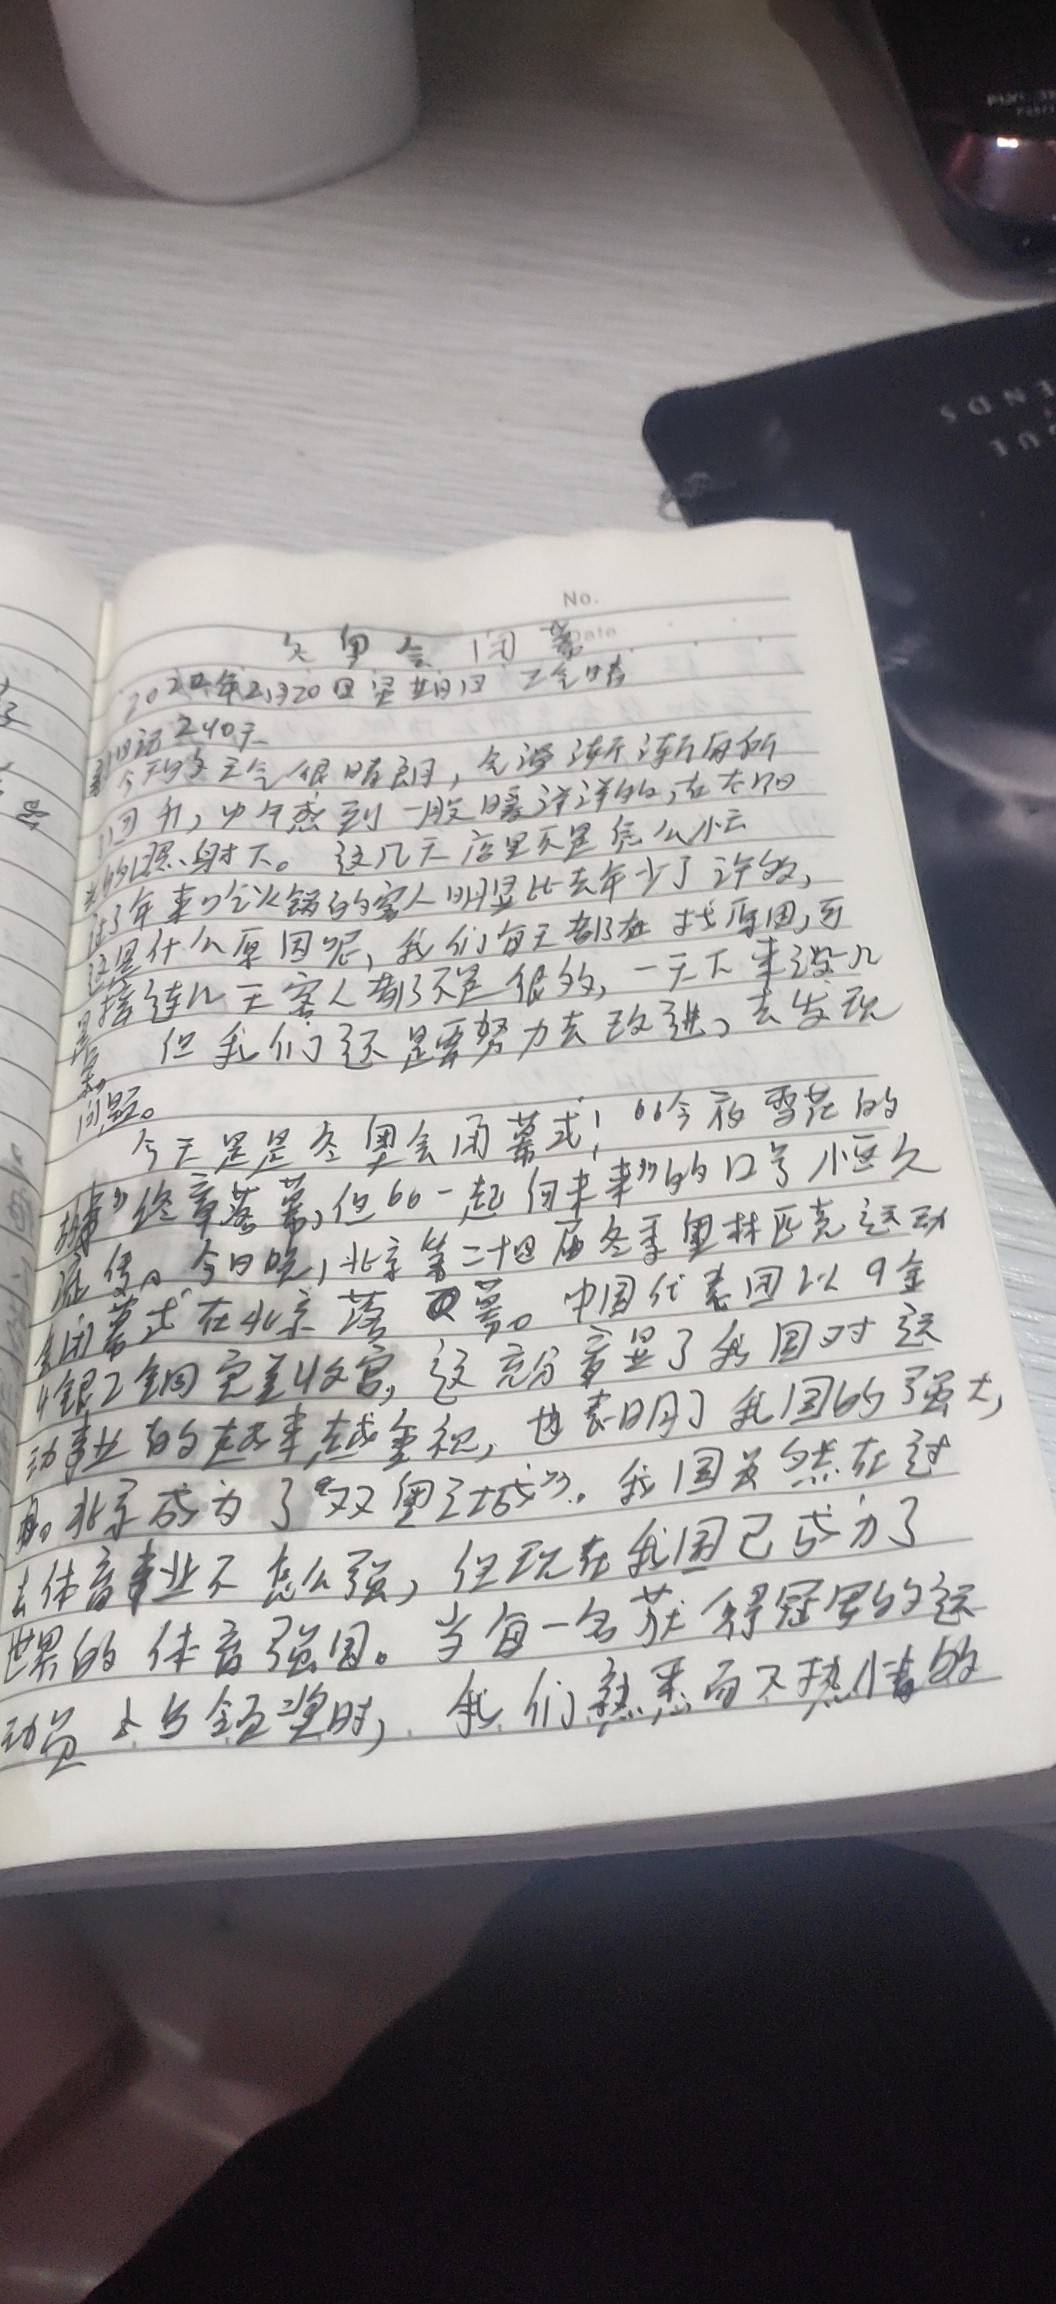 No.
Date
冬奥会闭幕
2022年2月20日 星期日 天气晴
写日记240天
今天的天气很晴朗，气温渐渐有所
回升，中午感到一股暖洋洋的，在太阳
光的照射下。这几天店里不是怎么忙
过了年来吃火锅的客人明显比去年少了许多，
这是什么原因呢，我们每天都在找原因，可
是接连几天客人都不是很多，一天下来没几
桌。但我们还是要努力去改进，去发现
问题。
今天是是冬奥会闭幕式！“今夜雪花的
故事”终章落幕，但“一起向未来”的口号恒久
流传。今日晚，北京第二十四届冬季奥林匹克运动
会闭幕式在北京落幕。中国代表团以9金
4银2铜完美收官，这充分彰显了我国对运
动事业的越来越重视，也表明了我国的强大，
北京成为了“双奥之城”。我国虽然在过
去体育事业不怎么强，但现在我国已成为了
世界的体育强国。当每一名获得冠军的运
动员上台领奖时，我们熟悉而又热情的
ENDS
GUE